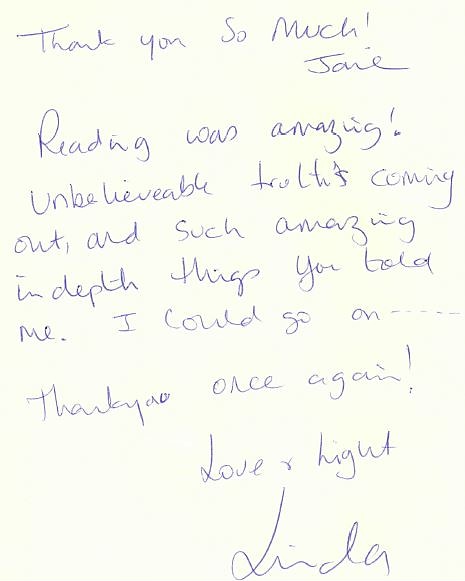 Thank you So Much!
Janie
Reading was amazing!
Unbelieveable truth's coming
out, and such amazing
indepth things you told
me. I could go on -----
Thankyou once again!
Love & Light
Linda